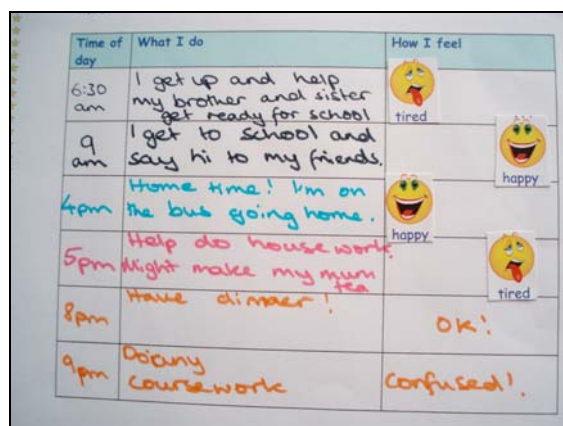 Time of day
What I do
How I feel
6:30 am
I get up and help
my brother and sister
get ready for school
tired
9 am
I get to school and
say hi to my friends.
happy
4pm
Home time! I'm on
the bus going home.
happy
5pm
Help do housework.
Might make my mum
tea
tired
8pm
Have dinner!
OK!
9pm
Do any
coursework
Confused!